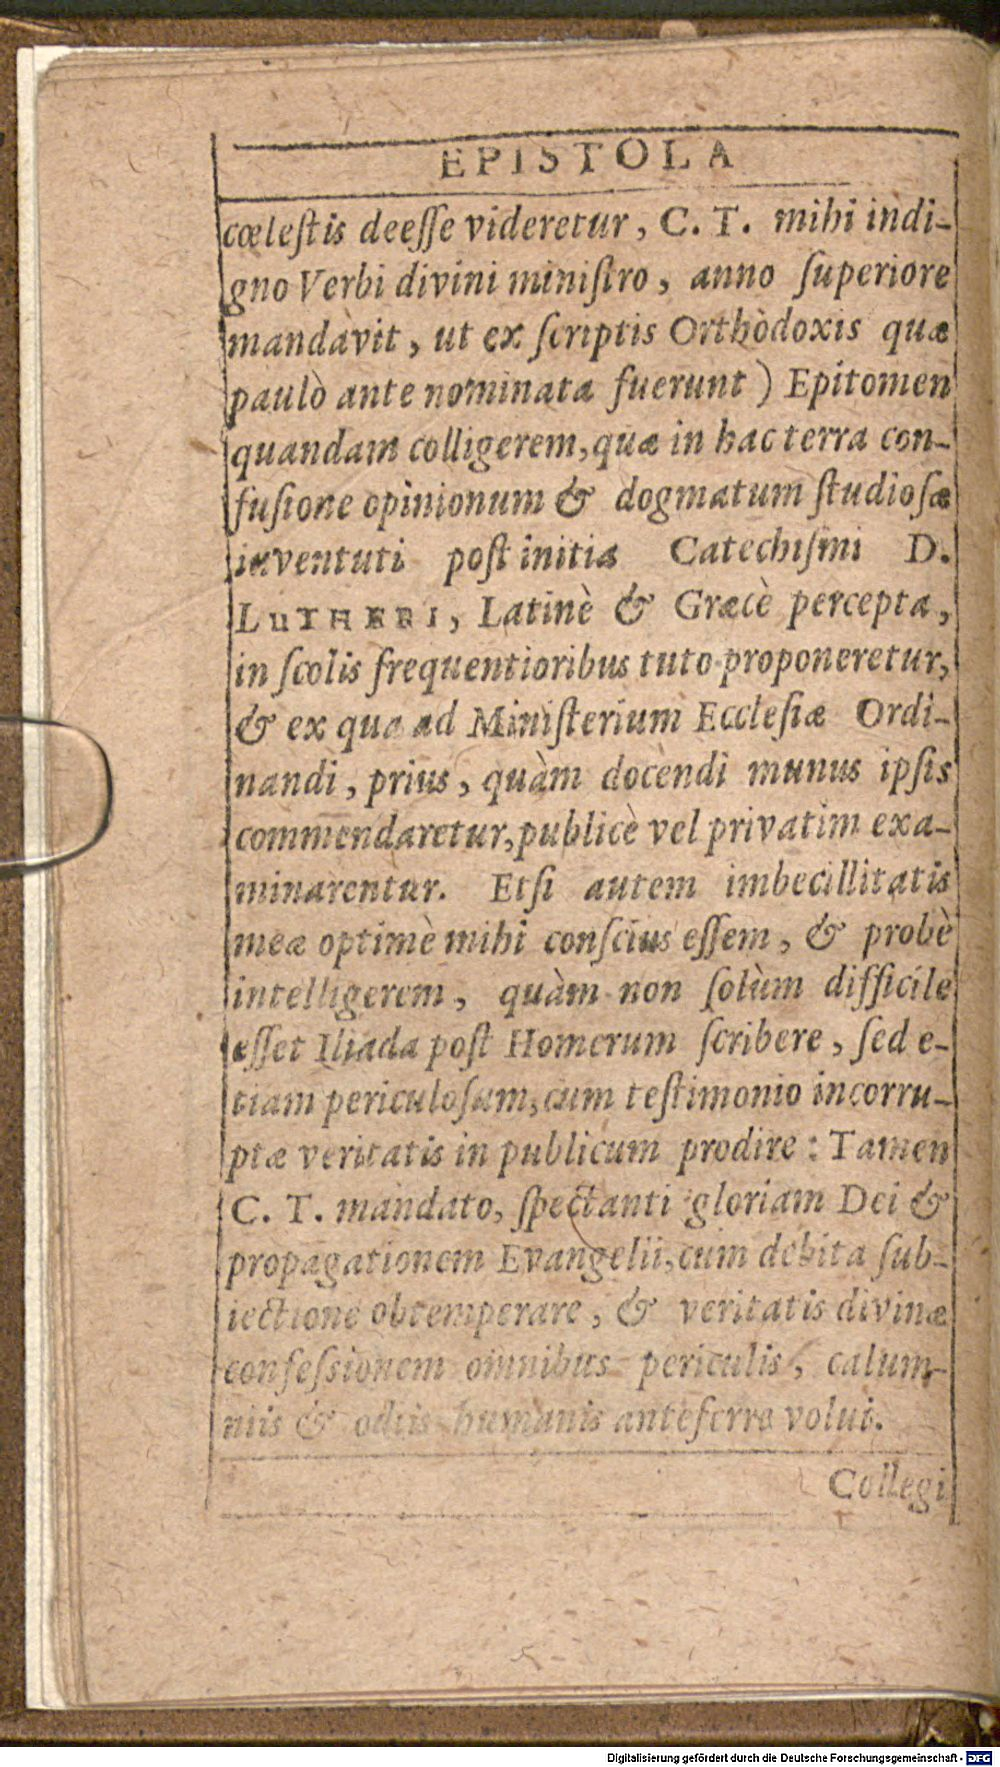 EPISTOLA
cœleſtis deeſſe videretur, C. T. mihi indi-
gno Verbi divini miniſtro, anno ſuperiore
mandàvit, ut ex ſcriptis Orthòdoxis quæ
paulò ante nominata fuerunt) Epitomen
quandam colligerem, quæ in hac terra con-
fuſione opinionum & dogmatum ſtudioſæ
iuventuti poſt initia Catechiſmi D.
LUTHERI, Latinè & Græcè percepta,
in ſcolis frequentioribus tuto proponeretur,
& ex qua ad Miniſterium Eccleſiæ Ordi-
nandi, prius, quàm docendi munus ipſis
commendaretur, publicè vel privatim exa-
minarentur. Etſi autem imbecillitatis
meæ optimè mihi conſcius eſſem, & probè
intelligerem, quàm non ſolùm difficile
eſſet Iliada poſt Homerum ſcribere, ſed e-
tiam periculoſum, cum teſtimonio incorru-
ptæ veritatis in publicum prodire: Tamen
C. T. mandato, ſpectanti gloriam Dei &
propagationem Evangelii, cum debita ſub-
iectione obtemperare, & veritatis divinæ
confeſsionem omnibus periculis, calum-
niis & odiis humanis anteferre volui.
Collegi
Digitalisierung gefördert durch die Deutsche Forschungsgemeinschaft - DFG